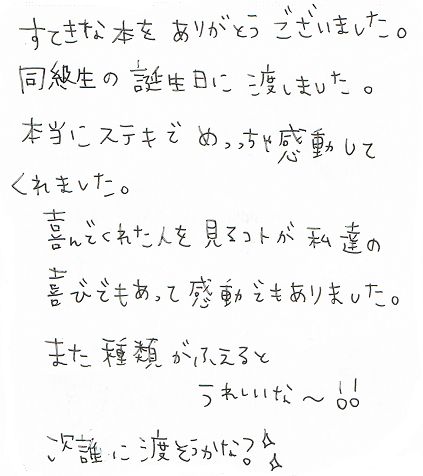 すてきな本を ありがとう ございました。
同級生の 誕生日に 渡しました。
本当にステキで めっっちゃ感動して
くれました。
喜んでくれた人を 見るコトが 私達の
喜びでもあって 感動でもありました。
また 種類 がふえると
うれしいな～!!
次誰に渡そうかな?